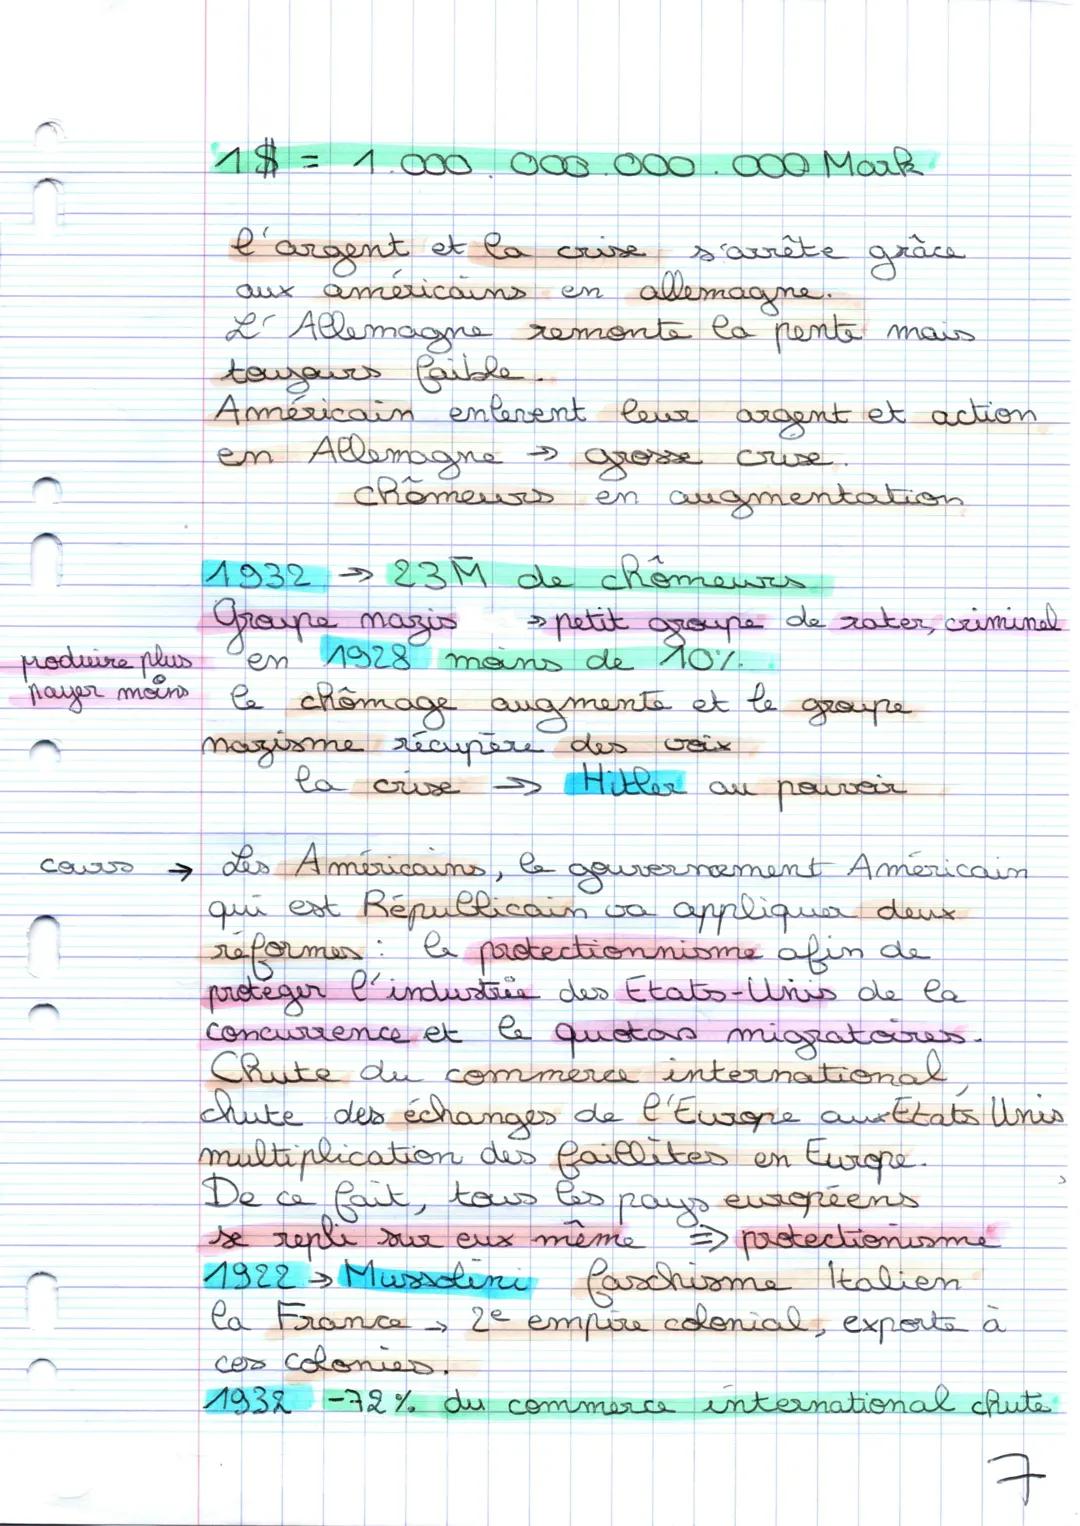 1$ = 1.000.000.000.000 Mark
l'argent et la crise s'arrête grâce
aux américains en allemagne.
L' Allemagne remonte la pente mais
toujours faible.
Américain enlevent leur argent et action
en Allemagne → grosse crise.
chômeurs en augmentation
1932 → 23M de chômeurs
Groupe nazis → petit groupe de rater, criminel
en 1928 moins de 10%.
produire plus
payer moins
le chômage augmente et le groupe
nazisme récupère des voix
la crise → Hitler au pouvoir
cours → Les Américains, le gouvernement Américain
qui est Républicain va appliquer deux
réformes : le protectionnisme afin de
protéger l'industrie des Etats-Unis de la
concurrence et le quotas migratoires.
Chute du commerce international,
chute des échanges de l'Europe aux Etats Unis
multiplication des faillites en Europe.
De ce fait, tous les pays européens
se repli sur eux même => protectionisme
1922 → Mussolini faschisme Italien
la France → 2e empire colonial, exporte à
ces colonies.
1932 -72% du commerce international chute
7